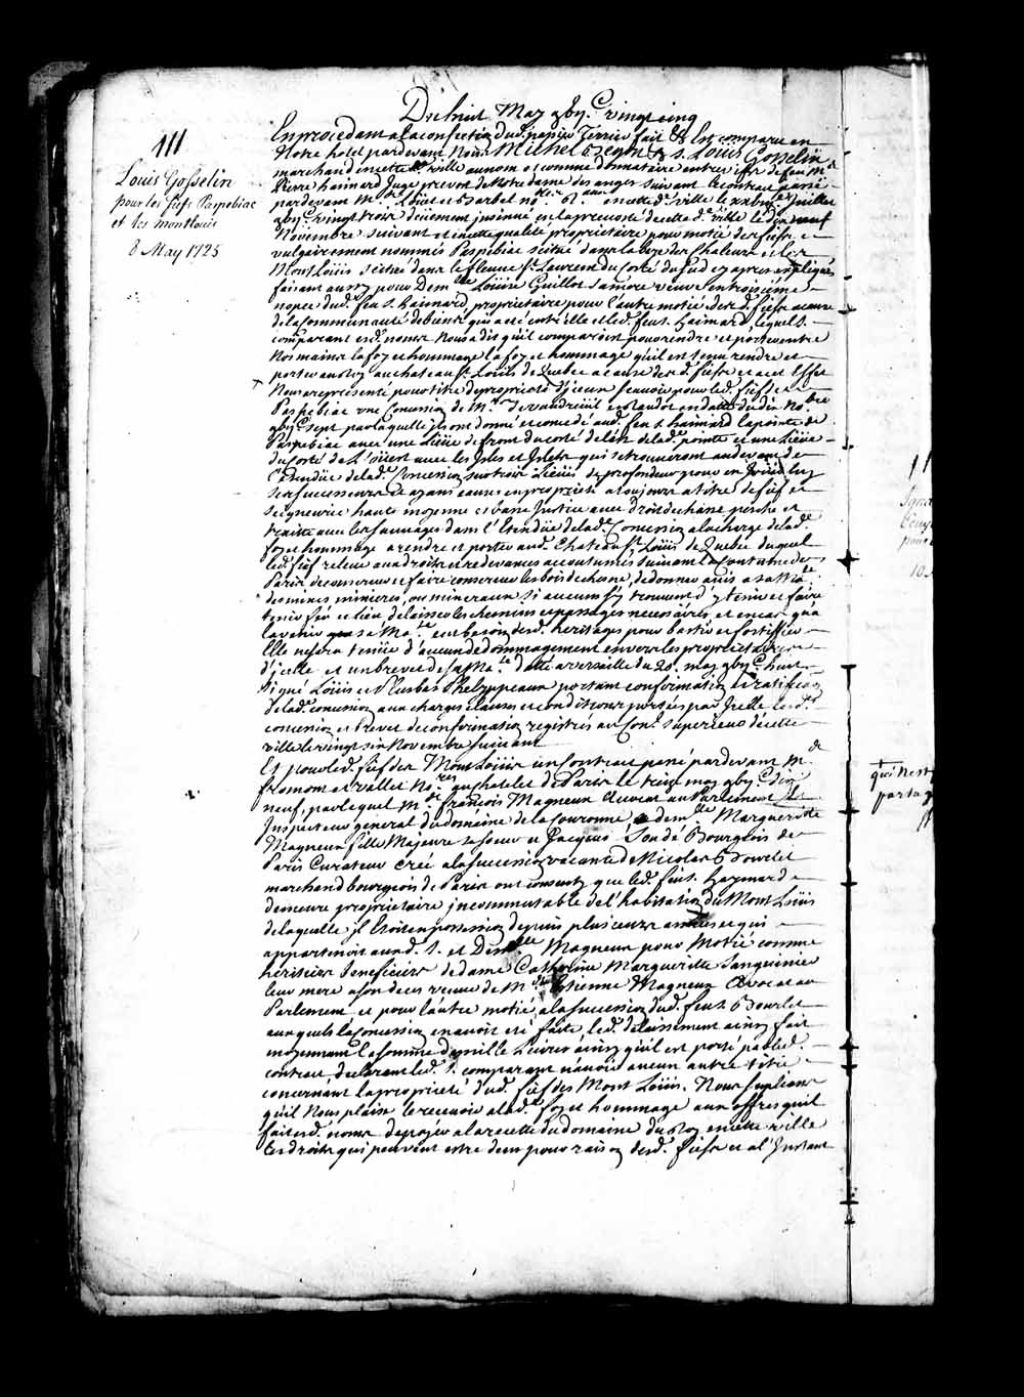 111
Louis Gosselin
pour les fiefs Paspebiac
et les montlouis
8 May 1725
Du huit May gbyc. vingt cinq
En procedant a la confection dud. papier Terrier fait &c. Est comparu en
Notre hotel pardevant Nous Michel Begon &c. s. Louis Gosselin
marchand en cette ville au nom et comme donnataire entre vifs de feu Me
Pierre haimard Juge prevost de Notre dame des anges suivant le contrat passé
pardevant Me Loüet et Barbel nores. en cette de. ville le juillet
gbyc. vingt trois düement insinué en la prevosté de cette de. ville le dix neuf
Novembre suivant et en cette qualité proprietaire pour motié des fiefs
vulgairement nommés Paspebiac scitué dans la baye des Chaleurs et les
Mont Loüis scitué dans le fleuve St. Laurent du costé du Sud cy apres expliqués
faisant aussy pour Demlle Loüise Guillot Samore veuve en troisiéme
nopce dud. feu s. haimard, proprietaire pour l'autre motié desd. fiefs a cause
de la communauté de biens qui a eté entr'elle et led. feu s. haimard, lequel s.
comparant esd. noms Nous a dit qu'il comparoist pour rendre et porter entre
Nos mains la foy et hommage la foy et hommage qu'il est tenu rendre et
porter au Roy au chateau St. Loüis de Quebec a cause desd. fiefs et a cet effet
Nous a representé pour titre de proprieté d'jceux sçavoir pour led. fief de
Paspebiac une Concession de Mrs. de vaudreüil et Raudot en datte du dix Nobre
gbyc. sept par laquelle jls ont donné et concedé aud. feu s. haimard la pointe de
Paspebiac avec une Lieüe de front du costé de l'Est de lad. pointe et une Lieüe
du costé de L'oüest avec les Jsles et Jslets qui se trouveront au devant de
l'Etendüe de lad. Concession sur trois Lieües de profondeur pour en Joüir luy
ses successeurs et ayans cause en proprieté a toujours a titre de fief et
seigneurie haute moyenne et basse Justice avec droit de chasse pesche et
traitte avec les sauvages dans l'Etendüe de lad. Concession a la charge de lad.
foy et hommage a rendre et porter aud. Chateau St. Loüis de Quebec duquel
led. fief releve aux droits et redevances accoutumés suivant la Coutume de
Paris de conserver et faire conserver les bois de chesne, de donner avis a sa Maté.
des mines minieres, ou mineraux si aucuns s'y trouvent d'y tenir et faire
tenir feu et lieu de laisser les chemins et passages necessaires, et en cas qu'a
l'avenir sa Maté. eut besoin desd. heritages pour bastir et fortiffier
Elle ne sera tenüe d'aucun dedommagement envers les proprietaires
d'jcelle et un brevet de sa Maté. datté a versaille du 20. may gbyc. huit
signé Loüis et Plus bas Phelypeaux portant confirmation et ratification
de lad. concession aux charges clauses et conditions portées par Jcelle lesd.
concession et brevet de confirmation registrés au Conl. superieur de cette
ville le vingt six Novembre suivant
Et pour led. fief des Mont Loüis un contrat passé pardevant Me
fromont et vallet Nores. au chatelet de Paris le treize may gbyc. dix
neuf, par lequel Me. françois Magneux Avocat au Parlement et
Inspecteur general du domaine de la couronne, & demlle Marguerite
Magneux fille Majeure sa soeur et Jacques Bourgeois de
Paris Curateur creé a la succession vacante de Nicolas Bourlet
marchand bourgeois de Paris ont consenty que led. feu s. haymard
demeure proprietaire jncommutable de l'habitation du Mont Loüis
de laquelle jl Etoit en possession depuis plusieurs années et qui
appartenoit aud. s. et Demlle Magneux pour Motié comme
heritiers beneficiers de dame Catherine Marguerite Sanguiniere
leur mere a son deces veuve de Me Estienne Magneux Avocat au
Parlement et pour l'autre motié a la succession dud. feu s. Bourlet
auxquels la Concession en avoit eté faite led. delaissement ainsy fait
moyennant la somme de mille Livres ainsy qu'il est porté par led.
contrat declarant led. s. comparant n'avoir aucun autre titre
concernant la proprieté dud. fief des Mont Loüis. Nous supliant
qu'il Nous plaise le recevoir a lad. foy et hommage aux offres qu'il
fait esd. noms de payer a la recette du domaine du Roy en cette ville
les droits qui peuvent estre deus pour raison desd. fiefs et a l'Instant
qui n'est
partag